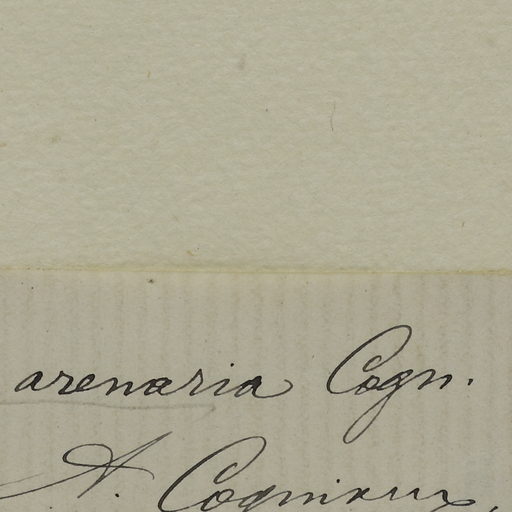 arenaria Cogn.
A. Cogniaux,